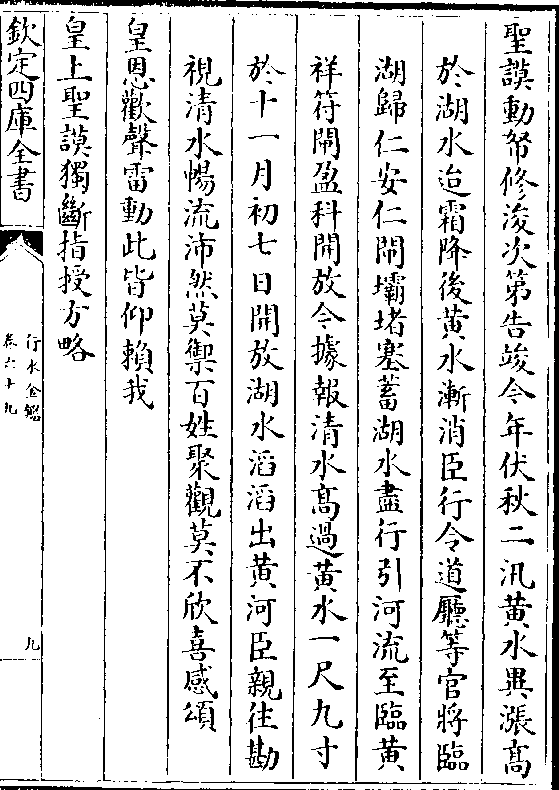 聖謨動帑修浚次第告竣今年伏秋二汛黄水異漲髙
於湖水迨霜降後黄水漸消臣行令道廳等官將臨
湖歸仁安仁閘壩堵塞蓄湖水盡行引河流至臨黄
祥符閘盈科開放今據報清水髙過黄水一尺九寸
於十一月初七日開放湖水滔滔出黄河臣親往勘
視清水暢流沛然莫禦百姓聚觀莫不欣喜感頌
皇恩歡聲雷動此皆仰賴我
皇上聖謨獨斷指授方略
欽定四庫全書
行水金鑑
卷六十九
九